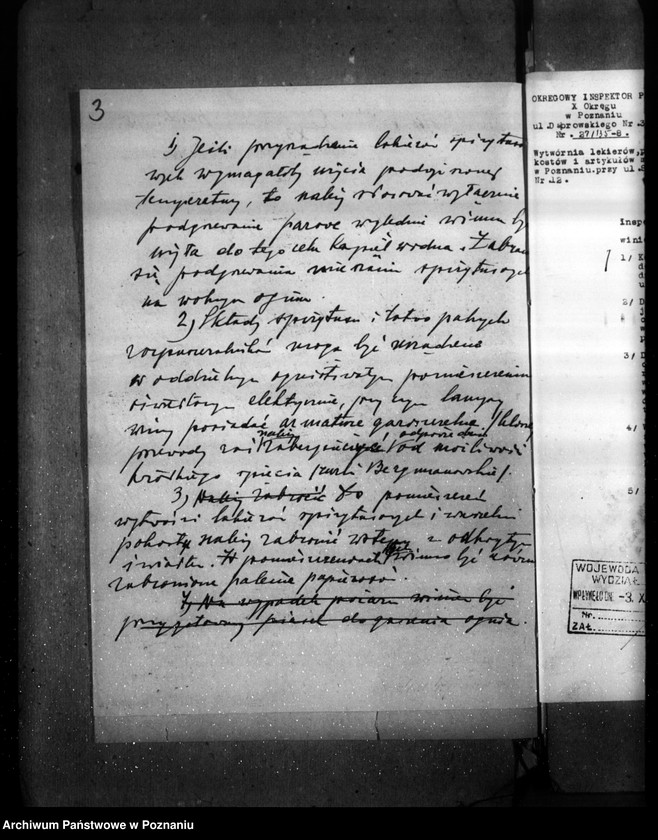 3
1) Jeśli przyrządzenie lakierów spirytuso
wych wymagałoby użycia podwyższonej
temperatury, to należy stosować wyłącznie
podgrzewanie parowe względnie winna być
użyta do tego celu kąpiel wodna. Zabrania
się podgrzewania mieszanin spirytusowych
na wolnym ogniu.
2) Składy spirytusu i łatwo palnych
rozpuszczalników mogą być urządzone
w oddzielnym ogniotrwałym pomieszczeniu
oświetlonym elektrycznie, przy czym lampy
winny posiadać armaturę gazoszczelną
przewody zaś należy zabezpieczyć odpowiednio od możliwości
krótkiego spięcia (rurki Bergmanowskie).
3) Należy zabronić Do pomieszczeń
wytwórni lakierów spirytusowych i
pokostu należy zabronić wstępu z odkrytym
światłem. W pomieszczeniach winno być również
zabronione palenie papierosów.
4) Na wypadek pożaru winien być
przygotowany piasek do gaszenia ognia.
OKRĘGOWY INSPEKTOR P
X Okręgu
w Poznaniu
ul.Dąbrowskiego Nr.
Nr. 27/115-8.
Wytwórnia lakierów,
kostów i artykułów
w Poznaniu.przy ul.
Nr.12.
Insp
winie
1/
2/
3/
4/
5/
WOJEWODA
WYDZIAŁ
WPŁYNĘŁO DNE -3. X
Nr.
ZAŁ.
Archiwum Państwowe w Poznaniu